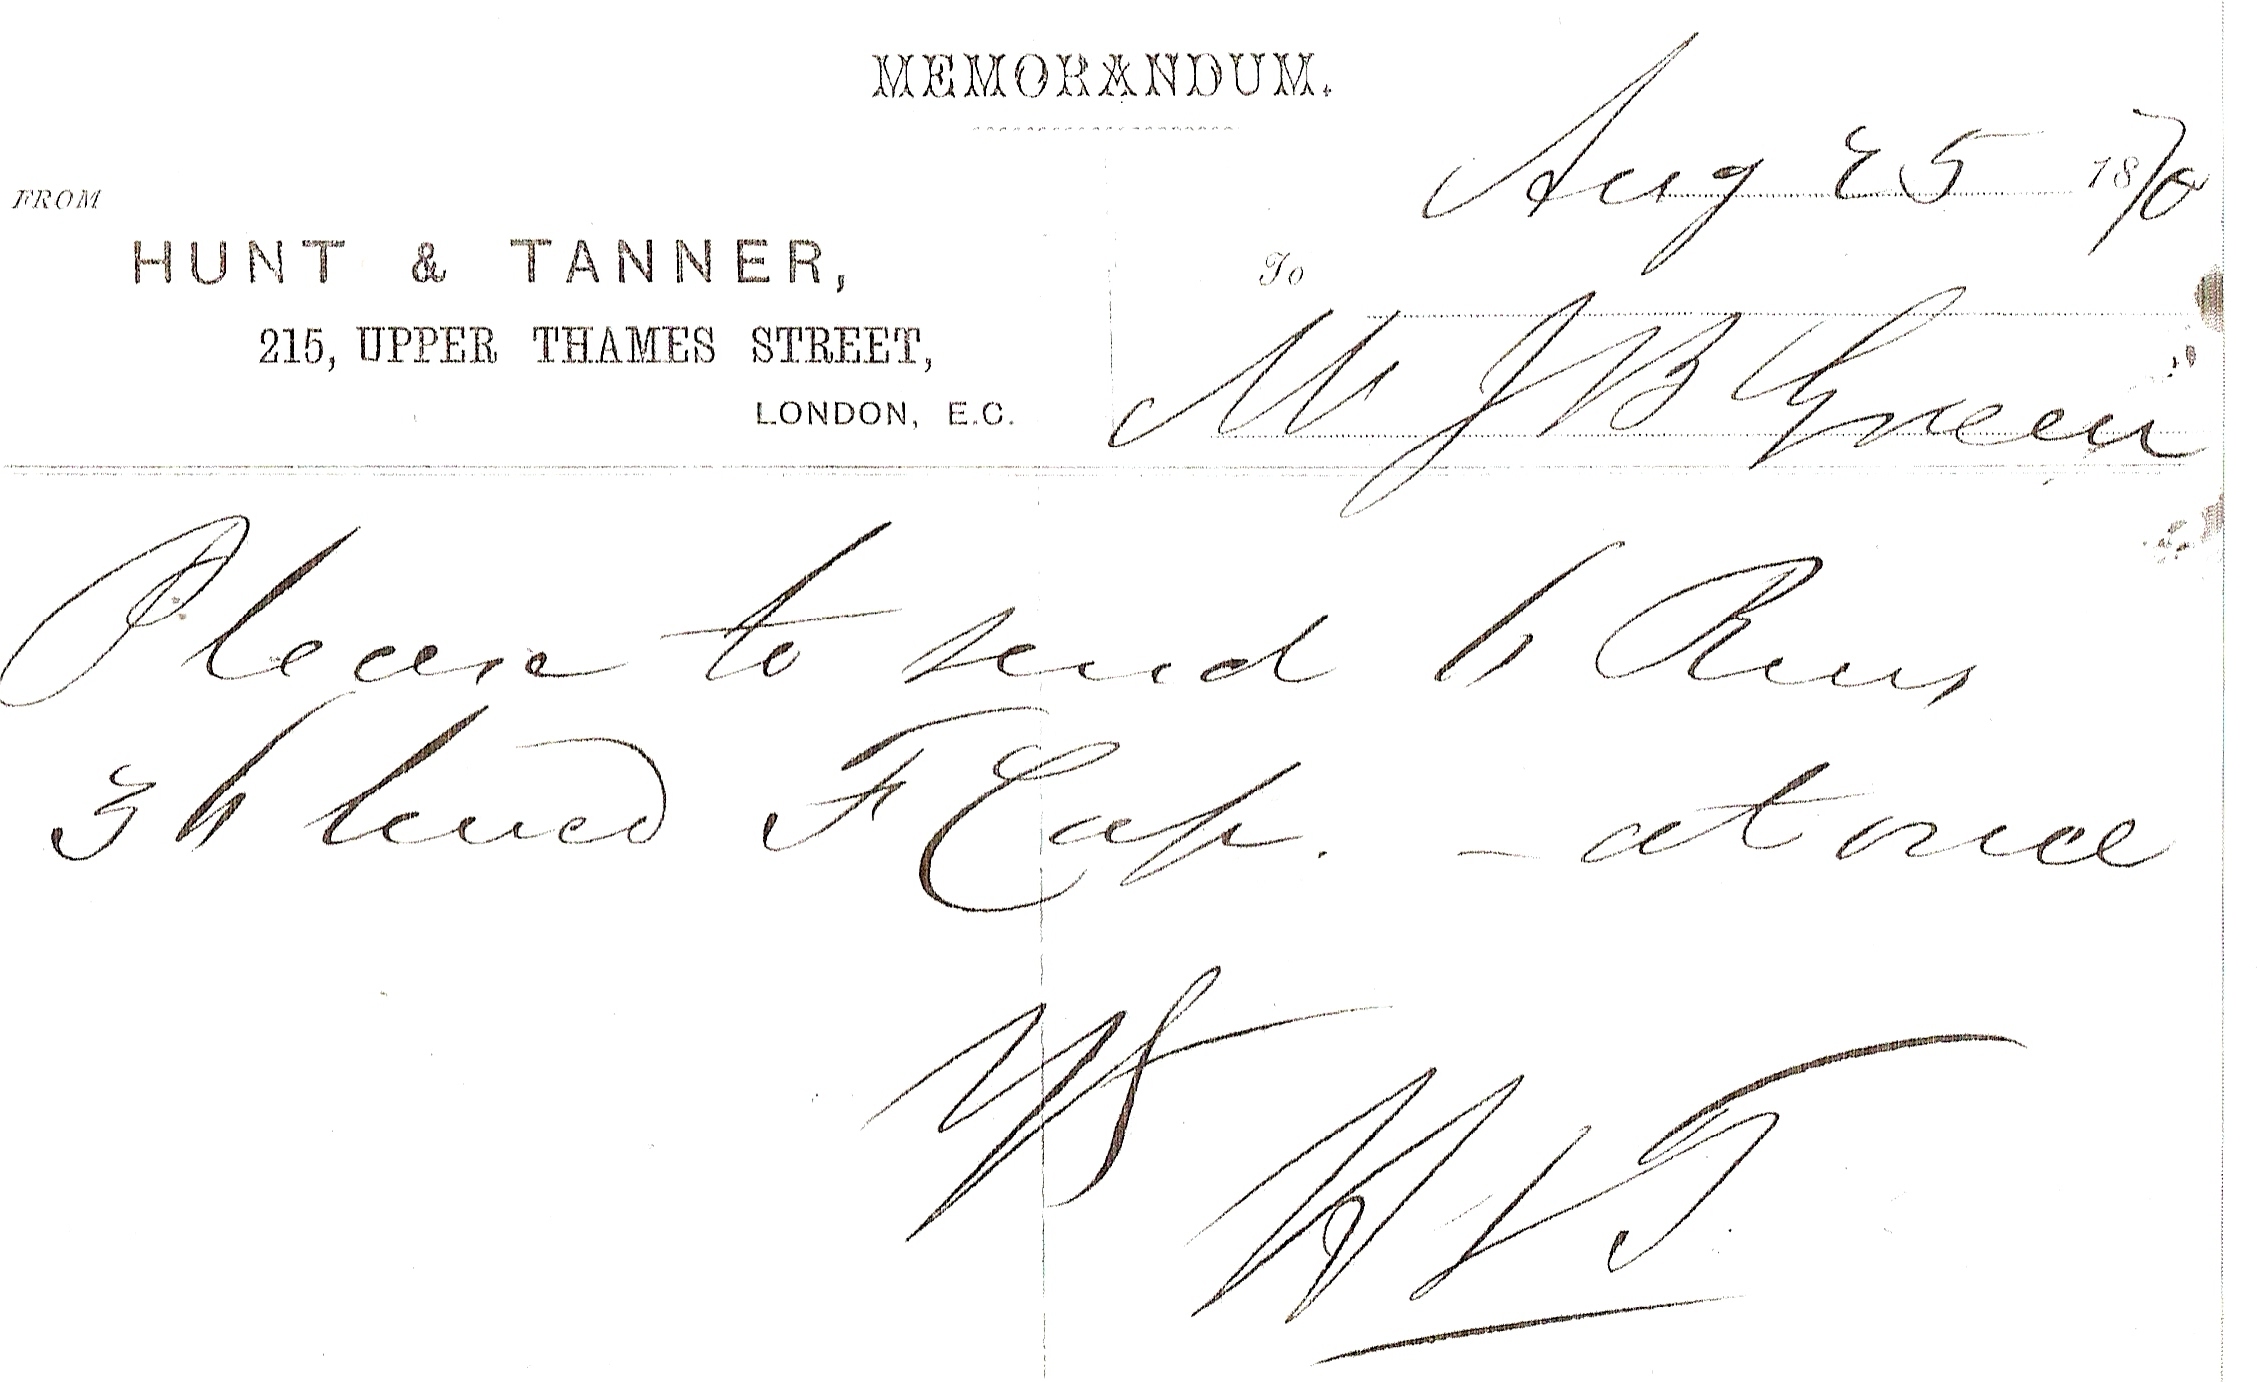 MEMORANDUM.
Aug 25 1878
FROM
HUNT & TANNER,
To
215, UPPER THAMES STREET,
Mr J B Green
LONDON, E.C.
Please to send
F Cap. - at once
Ys
H & T.